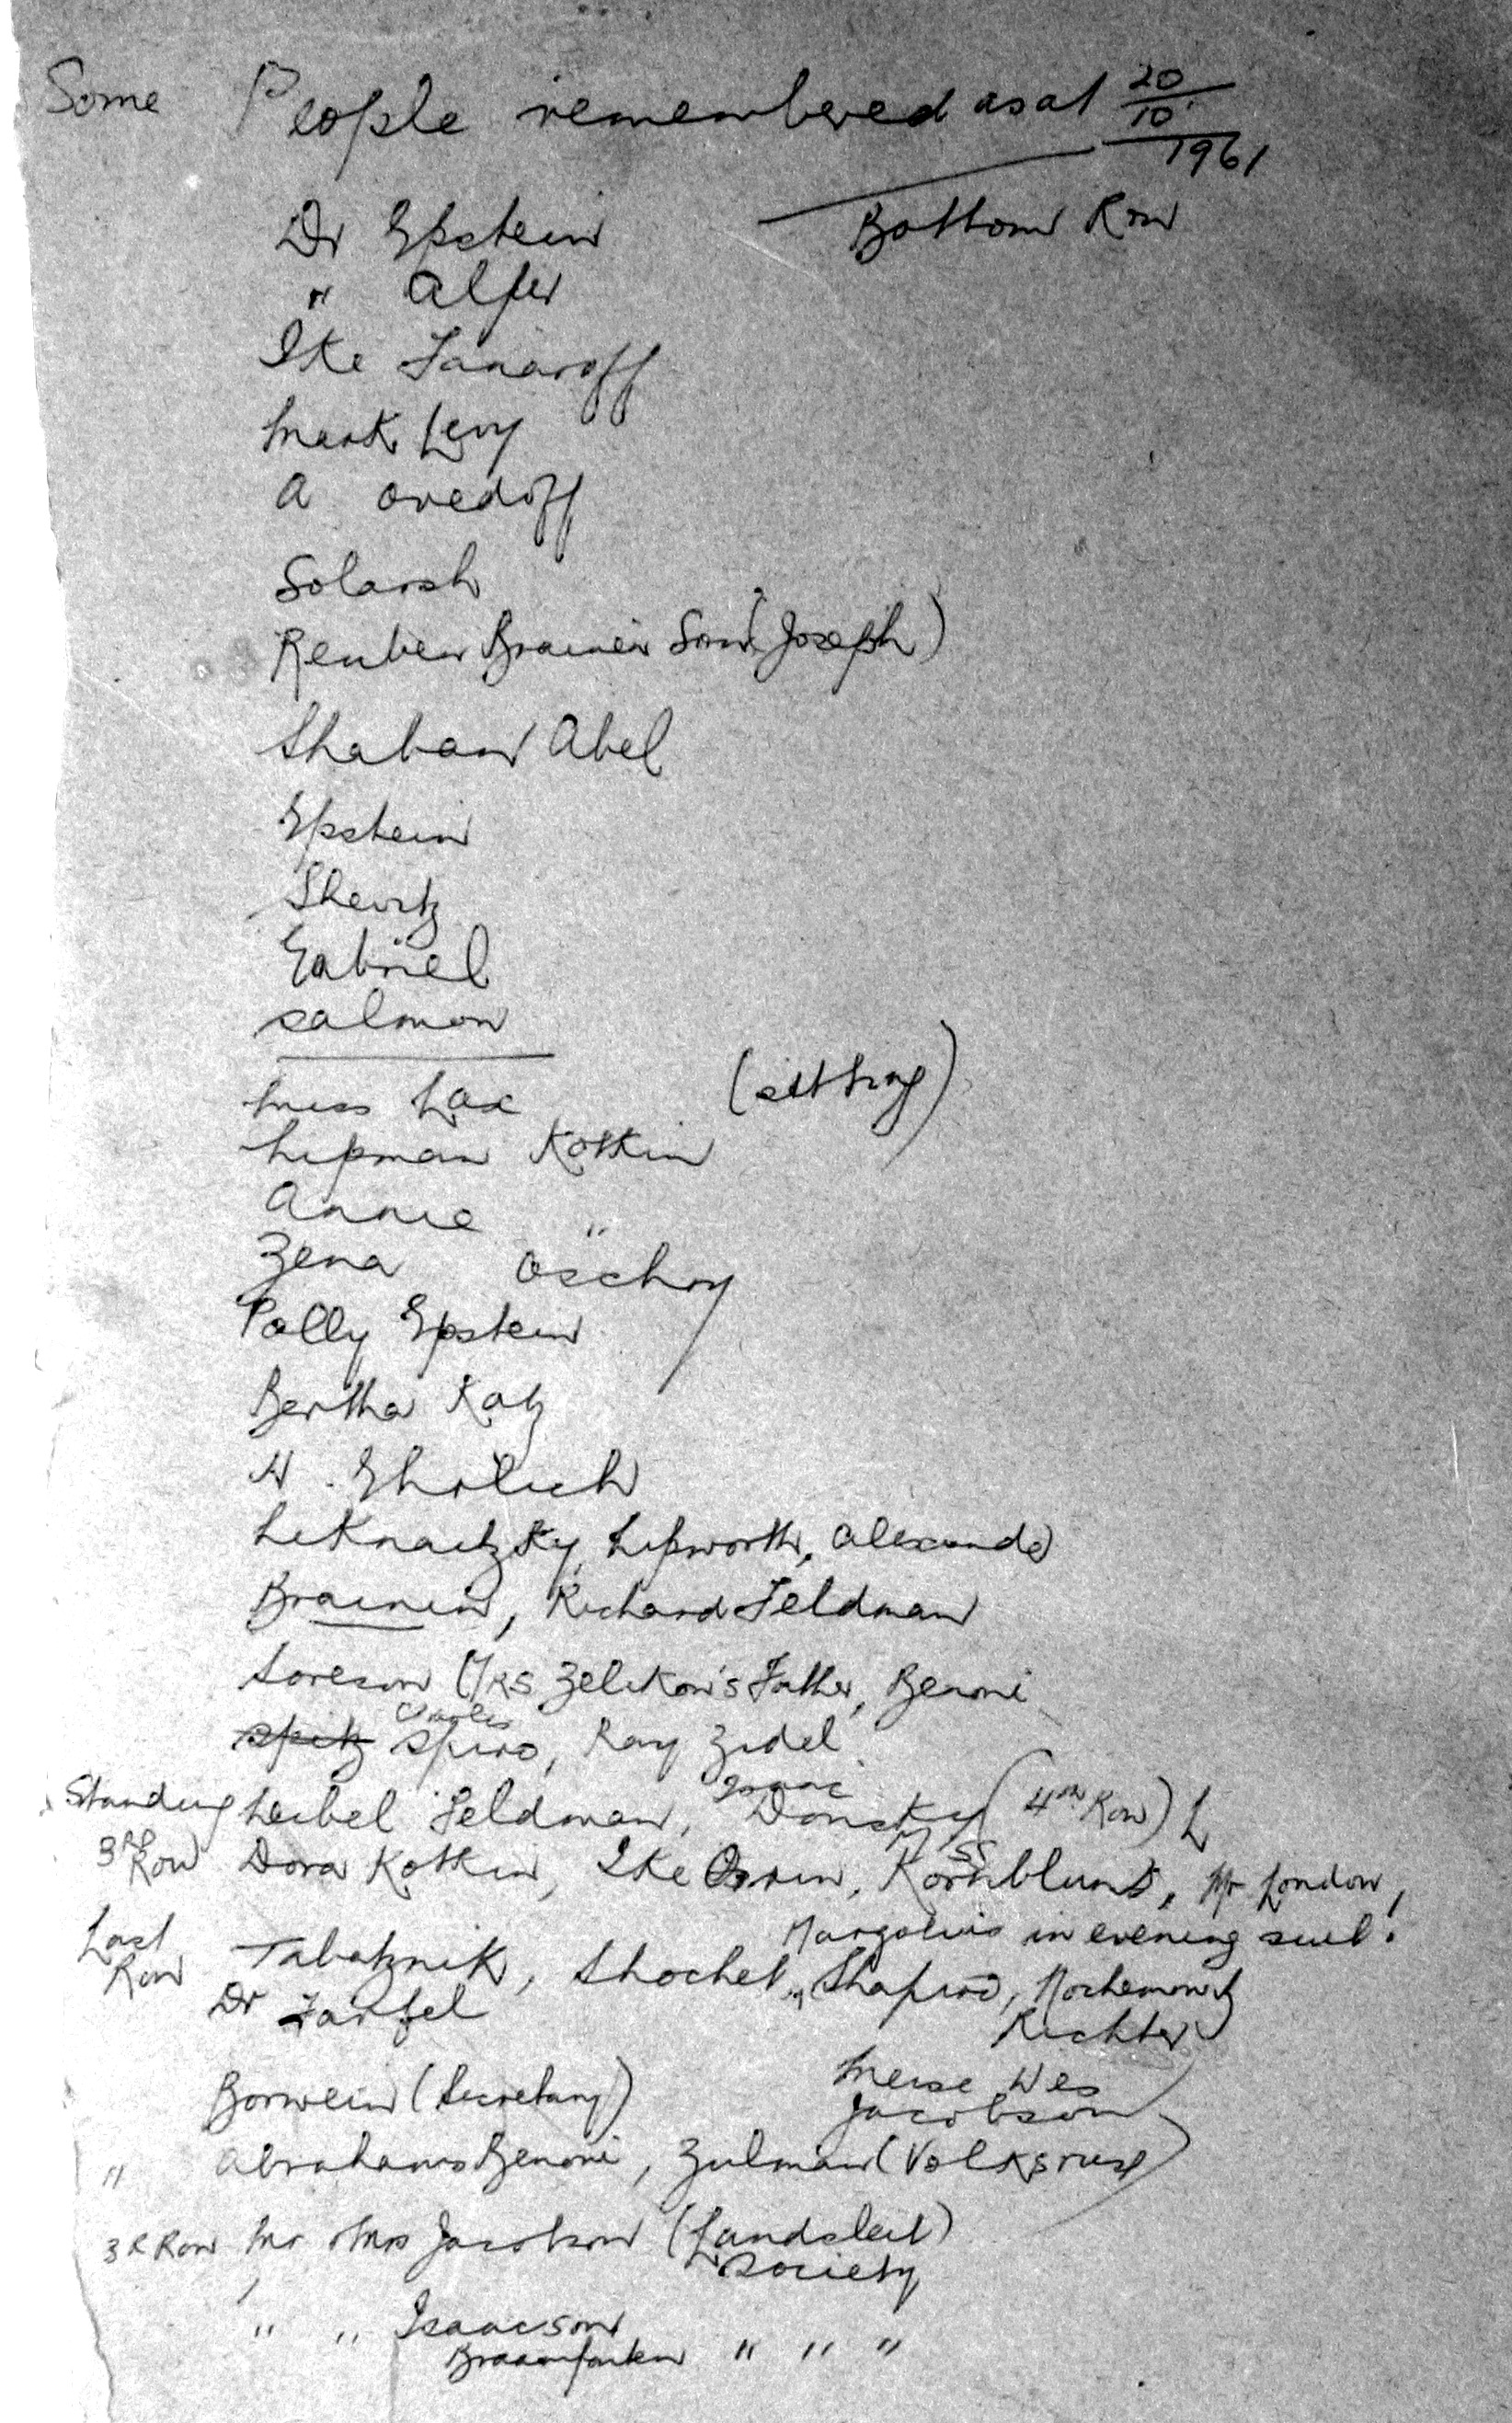 Some People remembered as at 20/10/1961
Dr Epstein Bottom Row
" Alper
Ike Fanaroff
Mark Levy
A Ovedoff
Solarsh
Reuben Brainin Son (Joseph)
Shaban Abel
Epstein
Shevitz
Gabriel
Salmon
Miss Lax (sitting)
Lipman Kotkin
Annie "
Zena
Polly Epstein
Bertha Katz
W. Ehrlich
Lipworth, Alexander
Brainin, Richard Feldman
Soreson Mrs Zelikow's Father, Benoni
Spitz Charles Spiro, Ray Zidel
Standing Leibel Feldman, Isaac Donsky (4th Row) L
3RD Row Dora Kotkin, Ike, Miss Kornblum, Mr London,
Margolius in evening suit.
Last Row Tabatznik, Shochet, Shapiro, Nochemovitz
Dr Richter
Borwein (Secretary)
Jacobson
" Abrahams Benoni, Zulman (Volksrust)
3R Row Mr & Mrs Jacobson (Landsleit)
Society
" " Isaacson
Braamfontein " " "